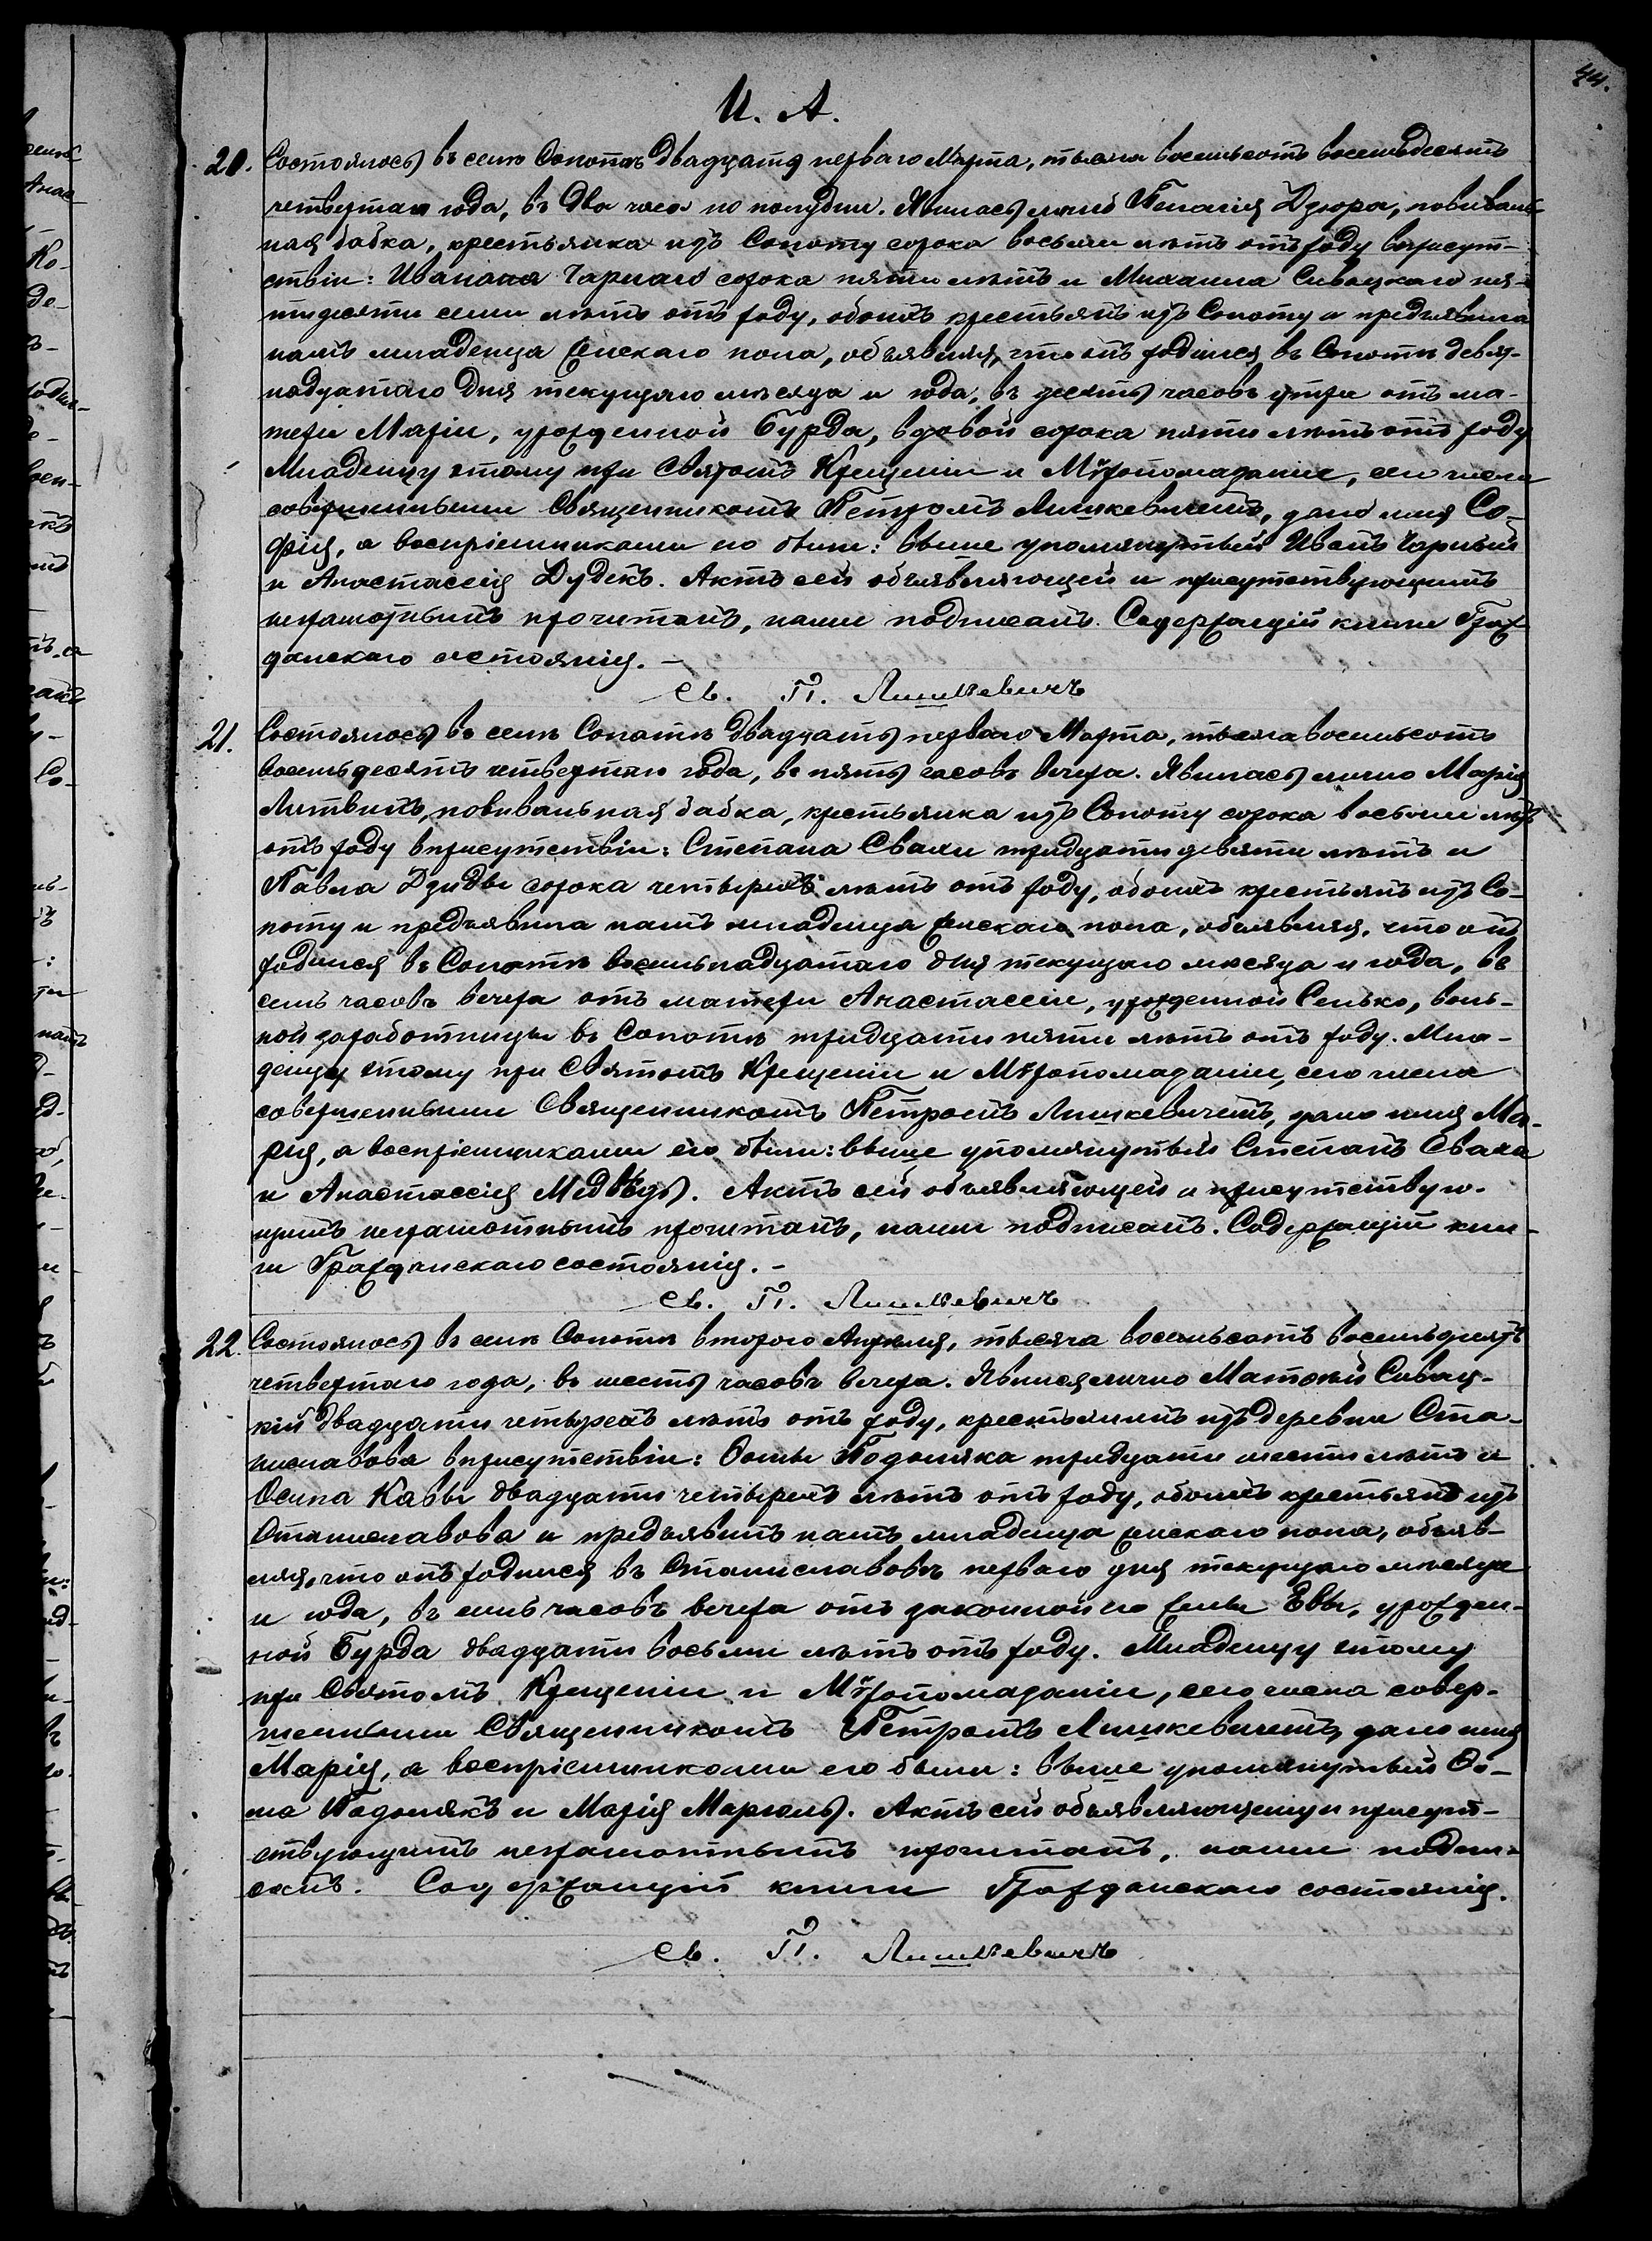 44.
И. А.
20. Состоялось въ селѣ Сопотѣ двадцать перваго Марта, тысяча восемьсотъ восемьдесятъ
четвертаго года, въ два часа по полудни. Явилась лично Пелагія Дзюра, повиваль-
ная бабка, крестьянка изъ Сопоту сорока восьми лѣтъ отъ роду въ присут-
ствіи: Ивана Чарнаго сорока пяти лѣтъ и Михаила Сивацкаго пя-
тидесяти семи лѣтъ отъ роду, обоихъ крестьянъ изъ Сопоту и предъявила
намъ младенца женскаго пола, объявляя, что онъ родился въ Сопотѣ девят-
надцатаго дня текущаго мѣсяца и года, въ десять часовъ утра отъ ма-
тери Маріи, урожденной Бурда, вдовой сорока пяти лѣтъ отъ роду
Младенцу этому при Святомъ Крещеніи и Мѵропомазаніи, сего числа
совершенныхъ Священникомъ Петромъ Лишкевичемъ, дано имя Со-
фія, а воспріемниками его были: выше упомянутый Иванъ Чарный
и Анастассія Дудекъ. Актъ сей объявляющей и присутствующимъ
неграмотнымъ прочитанъ, нами подписанъ. Содержащій книги Граж-
данскаго состоянія. —
Св. П. Лишкевичъ
21. Состоялось въ селѣ Сопотѣ двадцать перваго Марта, тысяча восемьсотъ
восемьдесятъ четвертаго года, въ пять часовъ вечера. Явилась лично Марія
Литвинъ, повивальная бабка, крестьянка изъ Сопоту сорока восьми лѣтъ
отъ роду въ присутствіи: Степана Свахи тридцати девяти лѣтъ и
Павла Дзидзы сорока четырехъ лѣтъ отъ роду, обоихъ крестьянъ изъ Со-
поту и предъявила намъ младенца женскаго пола, объявляя, что онъ
родился въ Сопотѣ восемьнадцатаго дня текущаго мѣсяца и года, въ
семь часовъ вечера отъ матери Анастассіи, урожденной Сенько, воль-
ной заработницы въ Сопотѣ тридцати пяти лѣтъ отъ роду. Мла-
денцу этому при Святомъ Крещеніи и Мѵропомазаніи, сего числа
совершенныхъ Священникомъ Петромъ Лишкевичемъ, дано имя Ма-
рія, а воспріемниками его были: выше упомянутый Степанъ Сваха
и Анастассія Медвѣдь. Актъ сей объявляющей и присутствую-
щимъ неграмотнымъ прочитанъ, нами подписанъ. Содержащій кни-
ги Гражданскаго состоянія. —
Св. П. Лишкевичъ
22. Состоялось въ селѣ Сопотѣ втораго Апрѣля, тысяча восемьсотъ восемьдесятъ
четвертаго года, въ шесть часовъ вечера. Явился лично Матвѣй Сивац-
кій двадцати четырехъ лѣтъ отъ роду, крестьянинъ изъ деревни Ста-
ниславова въ присутствіи: Ѳомы Подоляка тридцати шести лѣтъ и
Осипа Кавы двадцати четырехъ лѣтъ отъ роду, обоихъ крестьянъ изъ
Станиславова и предъявилъ намъ младенца женскаго пола, объяв-
ляя, что онъ родился въ Станиславовѣ перваго дня текущаго мѣсяца
и года, въ семь часовъ вечера отъ законной его жены Евы, урожден-
ной Бурда двадцати восьми лѣтъ отъ роду. Младенцу этому
при Святомъ Крещеніи и Мѵропомазаніи, сего числа совер-
шенныхъ Священникомъ Петромъ Лишкевичемъ, дано имя
Марія, а воспріемниками его были: выше упомянутый Ѳо-
ма Подолякъ и Марія Марголь. Актъ сей объявляющему и присут-
ствующимъ неграмотнымъ прочитанъ, нами подпи-
санъ. Содержащій книги Гражданскаго состоянія.
Св. П. Лишкевичъ